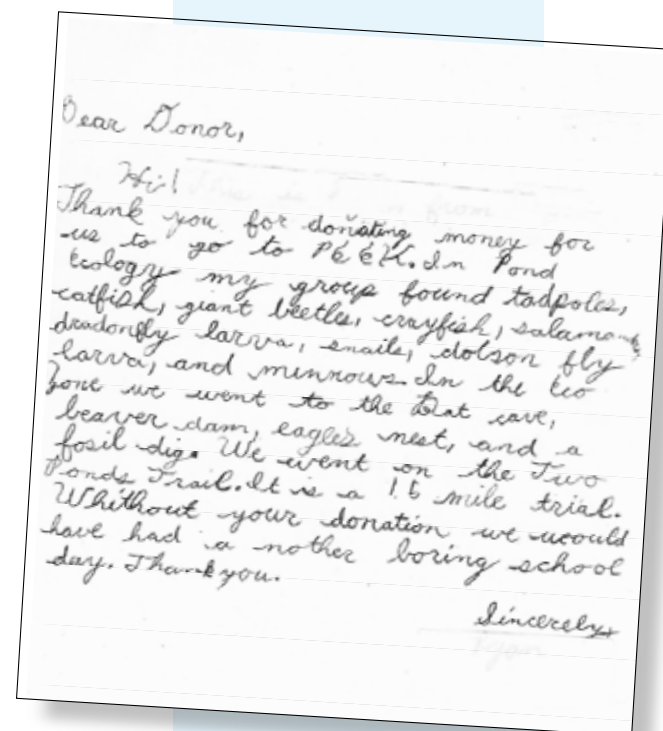 Dear Donor,
Hi!
Thank you for donating money for
us to go to PEEK. In Pond
Ecology my group found tadpoles,
catfish, giant beetles, crayfish, 
dradonfly larva, snails, dolson fly
larva, and minnows. In the Eco
Zone we went to the Bat cave,
beaver dam, eagles nest, and a
fosil dig. We went on the Two
Ponds Trail. It is a mile trial.
Whithout your donation we would
have had a nother boring school
day. Thank you.
Sincerely,